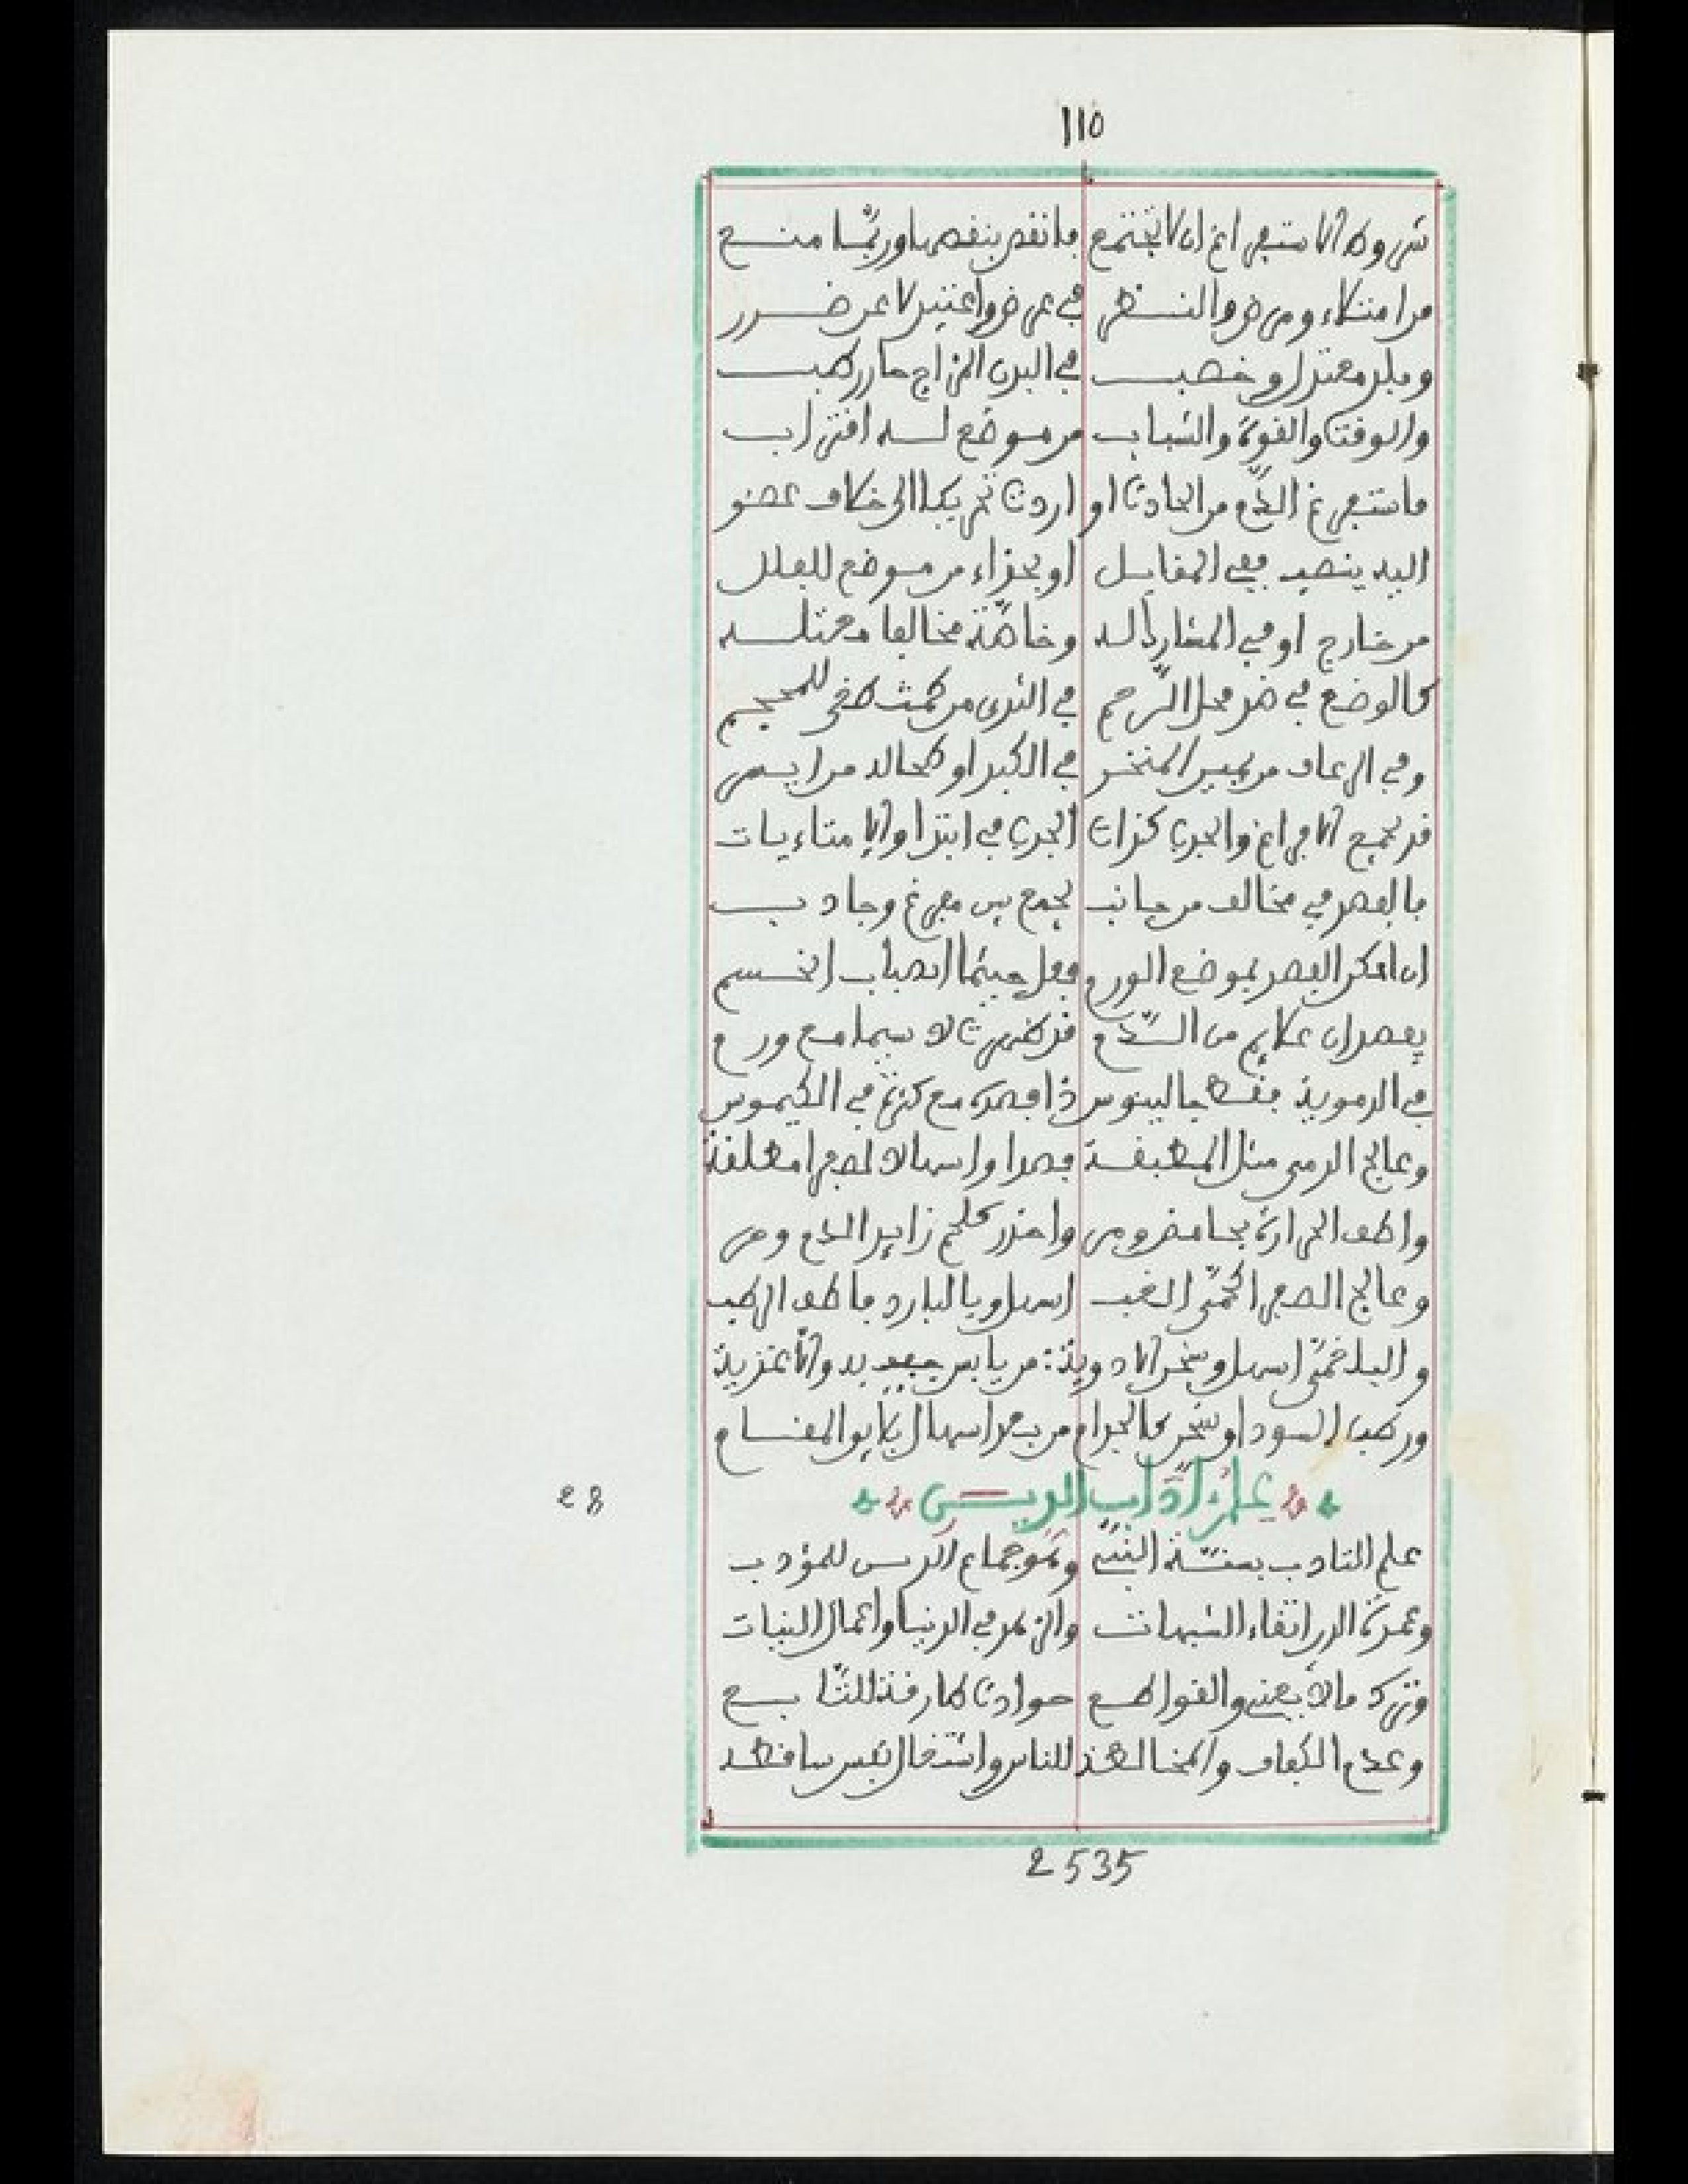 110
شروط الاستفراغ ان لا تجتمع فانقص بنقصها وربما منع
من امتلاء ومرض والنظر في عرض واعنين لا عن ضرر
وبلد معتدل او خصب في البدن المزاج حار رطب
والوقت والقوة والشباب من موضع له اقتراب
فاستفرغ الدم من الحادث او اردت تحريكا الى خلاف عضو
اليه ينصب ففي المقابل او بحذاء من موضع للعلل
من خارج او في المشارك له وخاصة مخالفا معتله
كالوضع في ضر محل الرحم في الثدي من طمث طغى للمحجم
وفي الرعاف من يمين المنخر في الكبد او طحاله من ايسر
قد يجمع الافراغ والجذب كذات الجذب في ابتدا والامتلاءيات
بالفصد في مخالف من جانب يجمع بين مفرغ وجاذب
ان امكن الفصد بموضع الورم فعل حيثما انصباب انحسم
يفصد ان علايم من الدم قد ظهرت لا سيما مع ورم
في الدموية فقط جالينوس ذا فصده مع كثرة في الكيموس
وعالج الدمى مثل المطبقة فصدا واسهالا لصفرا مغلقة
واطف الحرارة بحامض ومر واحذر كلحم زايد الدم ومر
وعالج الصفرا كحمى الغب اسهل وبالبارد فاطف الرطب
والبلغمى اسهل وسخن الادوية من يابس يفيد به والاغذية
ورطب السودا وسخن كالجذام مرب من اسهال بلايق المقام
علم ءاداب الدين
28
علم التادب بسنة النبي وهو جماع الدين للمؤدب
وعمدة الدين اتقاء الشبهات والزهد في الدنيا واعمال النيات
وترك ما لا يعني والقواطع حوادث طارقة للتابع
وعدم الكفاف والمخالطة للناس واشتغال نفس ساقطه
2535